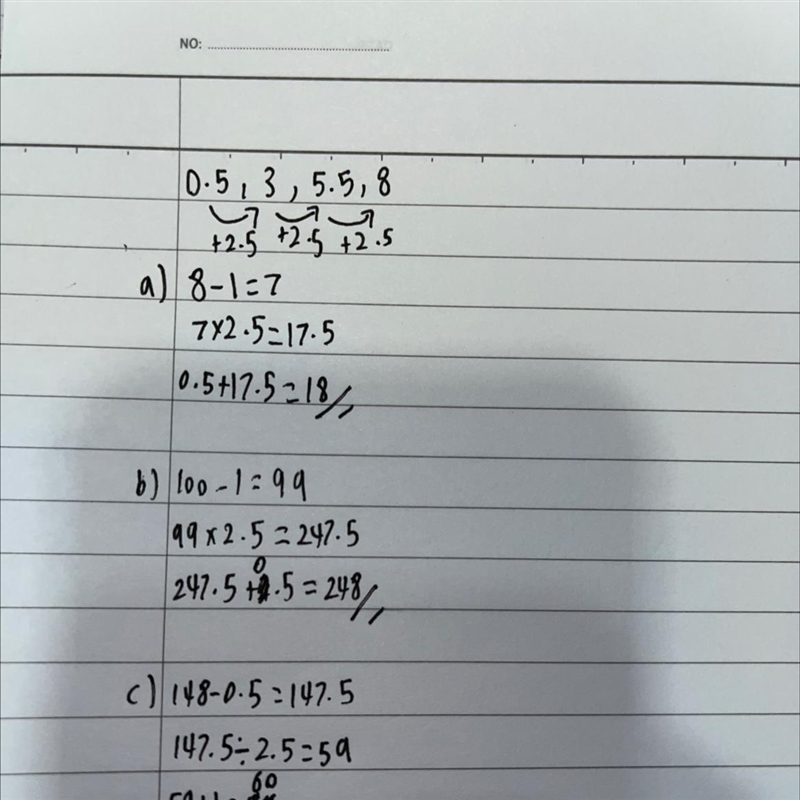 NO:
0.5, 3, 5.5, 8
+2.5 +2.5 +2.5
a) 8-1=7
7×2.5=17.5
0.5+17.5=18//
b) 100-1=99
99×2.5=247.5
247.5+0.5=248//
c) 148-0.5=147.5
147.5÷2.5=59
60